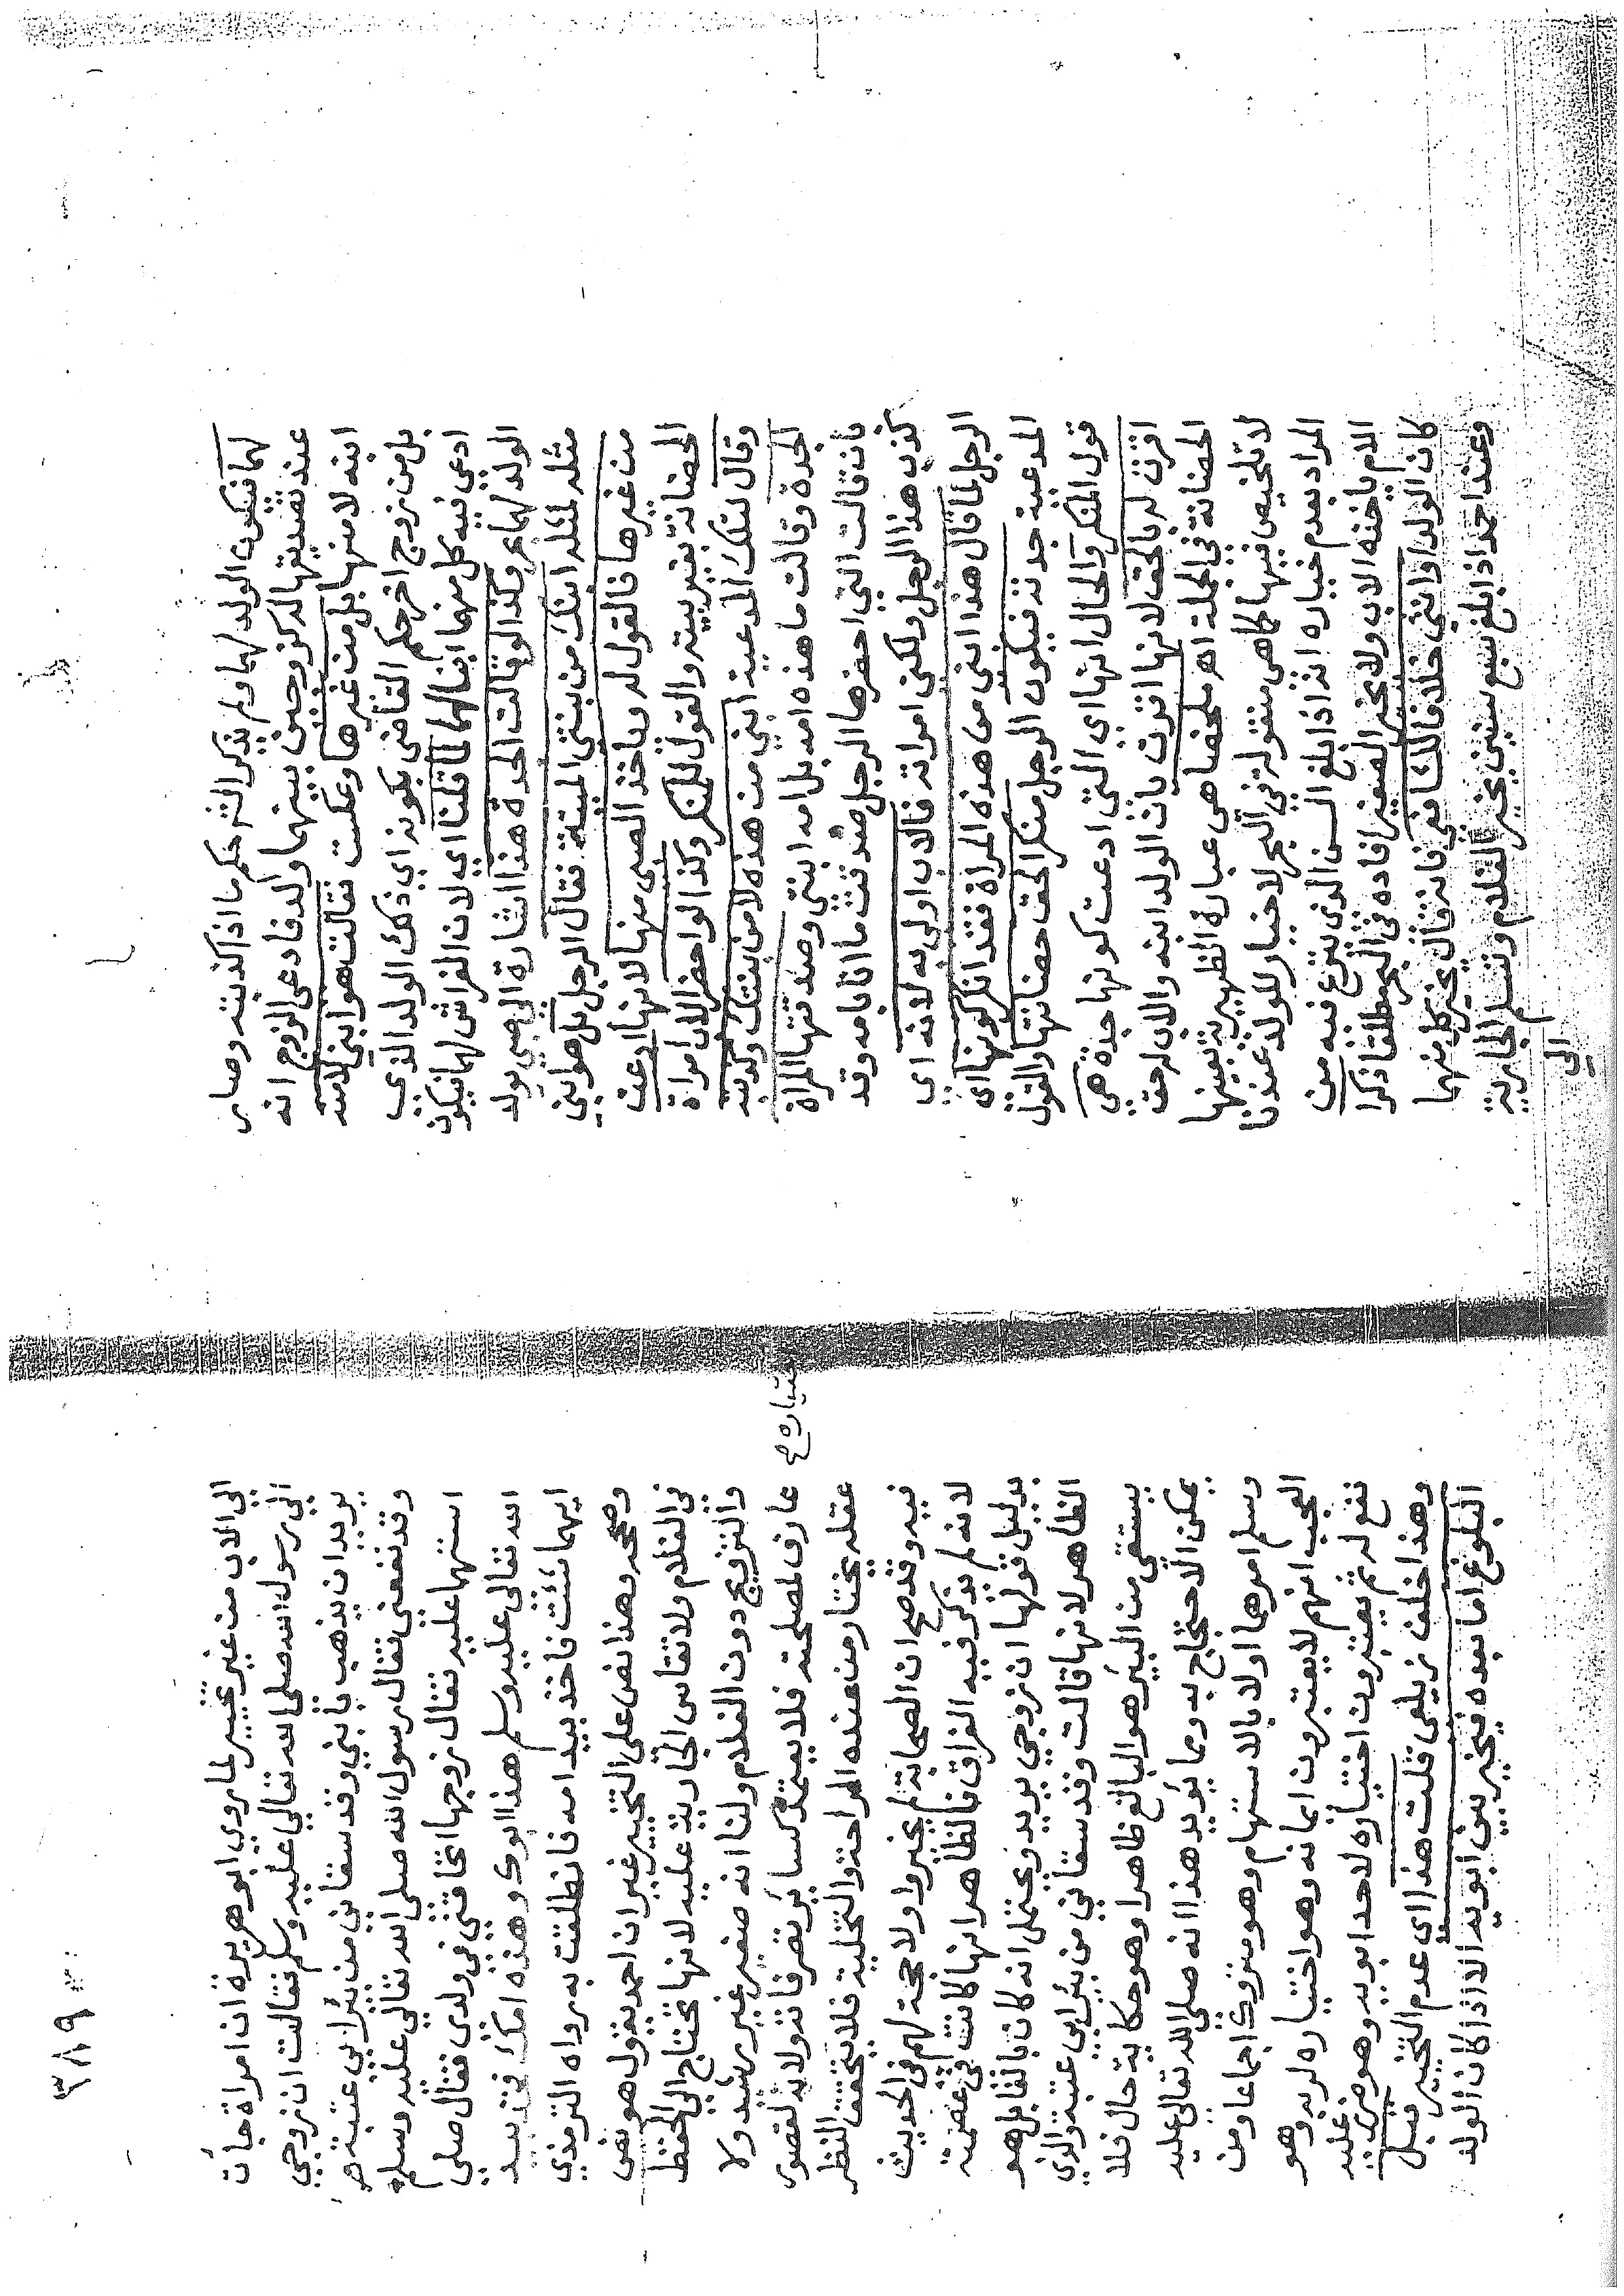 لهما فيكون الولد لهما ولم يذكر الشر حكم ما اذا كذبته وصار
عند تصديقها له كزوجين بينهما ولد فادعى الزوج انه
ابنه لا منها بل من غيرها وعكست فقالت هو ابني لا منه
بل من زوج اخر حكم القاضى بكونه اي ذلك الولد الذي
ادعى فيه كل منهما ابنا لهما لما قلنا اي لان الفراش لهما فيكون
الولد لهما وكذا لو قالت الجدة هذا اشارة الى صبي يولد
مثله لمثله ابنك من بنتي الميتة فقال الرجل بل هو ابني
من غيرها فالقول له وياخذ الصبى منها لانها ادعت
الحضانة بغير بينة والقول للمنكر وكذا لو احضر الاب امراة
وقال لتلك المدعية ابني من هذه لا من بنتك وكذبته
الجدة وقالت ما هذه امه بل امه ابنتي وصدقتها المراة
بان قالت التي احضرها الرجل صدقت ما انا بامه وقد
كذب هذا الرجل ولكني امراته فالاب اولى به لانه اي
الرجل لما قال هذا ابني من هذه المراة فقد انكر كونها اى
المدعية جدته فيكون الرجل منكرا لحق حضانتها والقول
قول المنكر والحال انها اي التي ادعت كونها جدة هي
اقرت له بالحق لانها اقرت بان الولد ابنه والاب له حق
الحضانة في الجملة اهر ملخصا هي عبارة الظهيرية بعينها
لا تلخيص فيها كما هى منقولة في البحر لا خيار للولد عندنا
المراد بعدم خياره انه اذا بلغ السن الذى ينزع فيه من
الام ياخذه الاب ولا يخير الصغير افاده في البحر مطلقا ذكرا
كان الولد او انثى خلافا للشافعي فانه قال يخير كل منهما
وعند احمد اذا بلغ سبع سنين يخير الغلام وتسلم الجارية
الى
٣٨٩
الى الاب من غير تخيير لما روي ابو هريرة ان امراة جأت
الى رسول الله صلى الله تعالي عليه وسلم فقالت ان زوجي
يريد ان يذهب بابني وقد سقاني من بئر ابي عنبة هر
وقد نفعني فقال رسول الله صلى الله تعالي عليه وسلم
استهما عليه فقال زوجها اتحاقني في ولدى فقال صلى
الله تعالى عليه وسلم هذا ابوك وهذه امك فخذ بيد
ايهما شئت فاخذ بيد امه فانطلقت به رواه الترمذي
وصححه وهذا نص على التخيير غير ان احمد يقول هو نص
فى الغلام ولا تقاس الجارية عليه لانها تحتاج الى الحفظ
والتزويج دون الغلام ولنا انه صغير غير رشيد ولا
عارف لمصلحته فلا يعتمد كسائر تصرفاته ولانه لقصور
ختياره صح
عقله يختار من عنده الراحة والتخلية فلا يتحقق النظر
فيه وقد صح ان الصحابة لم يخيروا ولا حجة لهم فى الحديث
لانه لم يذكر فيه الفراق فالظاهر انها كانت في عصمته
بدليل قولها ان زوجي يريد ويحتمل انه كان بالغا بل هو
الظاهر لانها قالت وقد سقاني من بئر ابي عنبة والذي
يستقي من البئر هو البالغ ظاهرا وهو حكاية حال فلا
يمكن الاحتجاج به ومما يؤيد هذا انه صلى الله تعالى عليه
وسلم امرهما اولا بالاستهام وهو متروك اجماعا ومن
العجب انهم لا يعتبرون ايمانه وهو اختياره لربه وهو
نفع له ثم يعتبرون اختياره لاحد ابويه وهو ضرر عليه
وهذا خلف زيلعى قلت هذا اى عدم التخيير قبل
البلوغ اما بعده فيخير بين ابويه الا اذا كان الولد